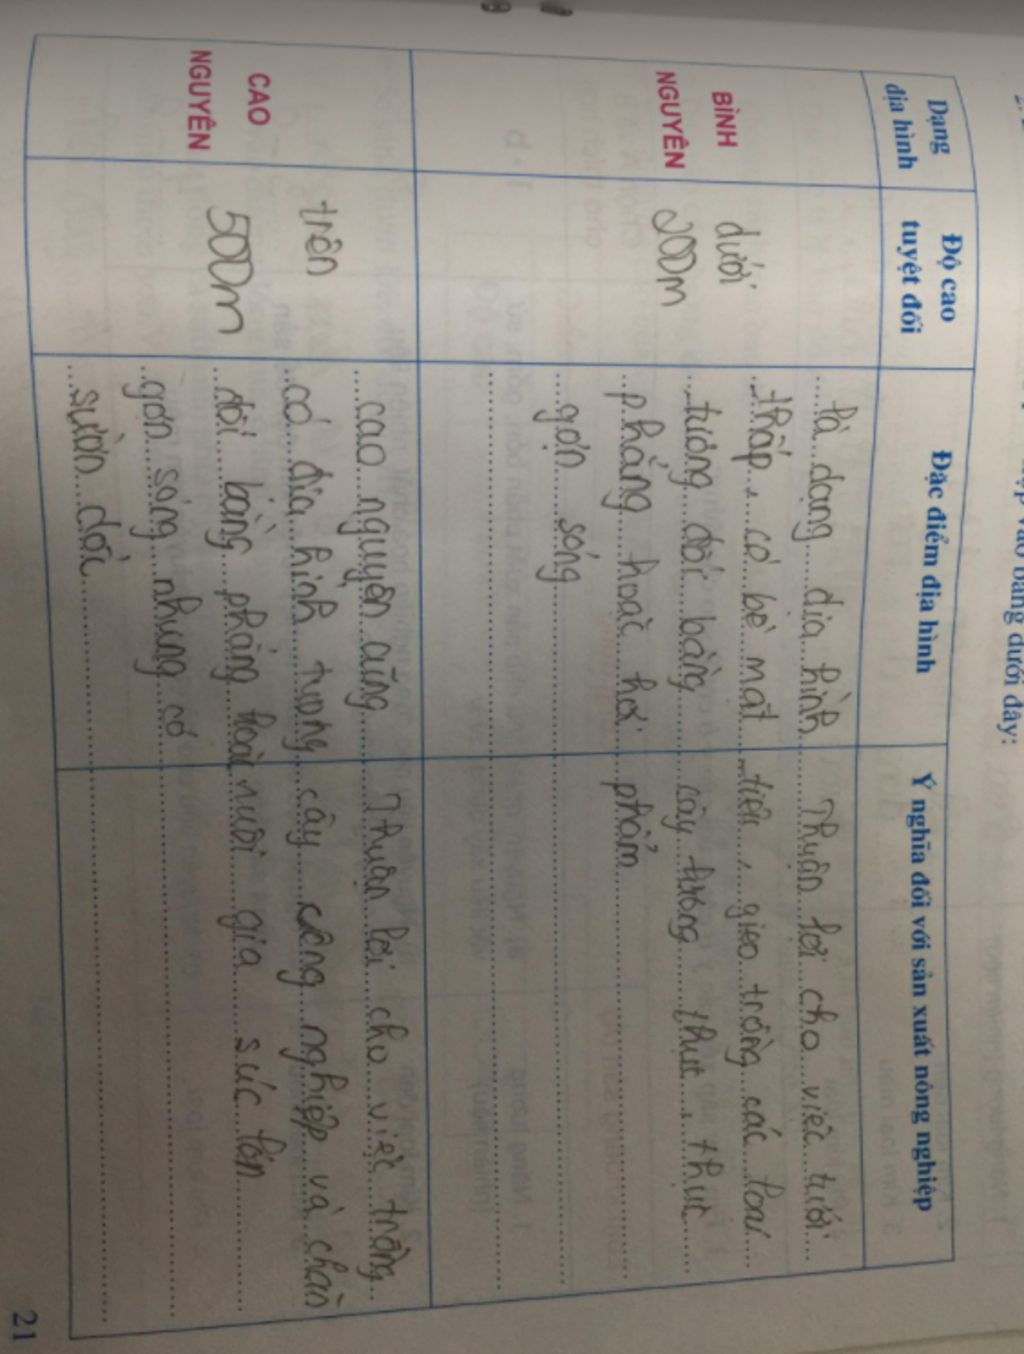 vào bảng dưới đây:
Dạng
địa hình
Độ cao
tuyệt đối
Đặc điểm địa hình
Ý nghĩa đối với sản xuất nông nghiệp
BÌNH
NGUYÊN
dưới
200m
là dạng địa hình
thấp, có bề mặt
tương đối bằng
phẳng hoặc hơi
gợn sóng
Thuận lợi cho việc tưới
tiêu, gieo trồng các loại
cây lương thực, thực
phẩm
CAO
NGUYÊN
trên
500m
cao nguyên cũng
có địa hình tương
đối bằng phẳng hoặc
gợn sóng nhưng có
sườn dốc
Thuận lợi cho việc trồng
cây công nghiệp và chăn
nuôi gia súc lớn
21